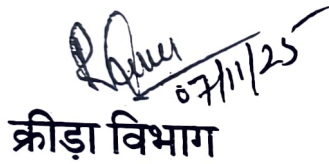 07/11/25
क्रीड़ा विभाग